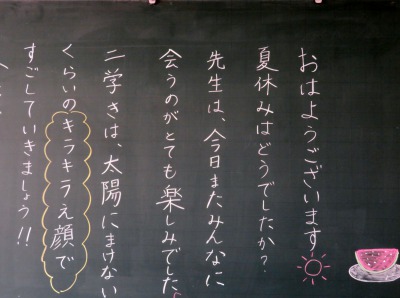 おはようございます
夏休みはどうでしたか?
先生は、今日またみんなに
会うのがとても楽しみでした。
二学きは、太陽にまけない
くらいのキラキラえ顔で
すごしていきましょう!!